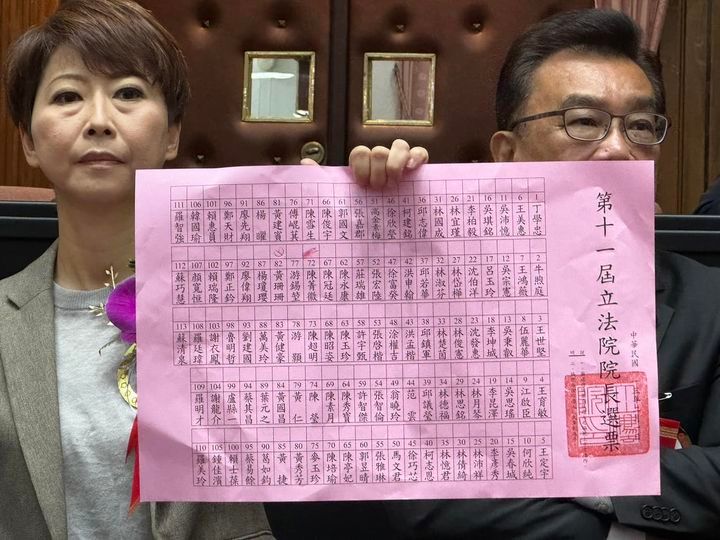 第十一屆立法院院長選票
中華民國
1 丁學忠
6 王美惠
11 吳沛憶
16 吳琪銘
21 李柏毅
26 林宜瑾
31 林國成
36 邱志偉
41 柯建銘
46 徐欣瑩
51 高金素梅
56 張嘉郡
61 郭國文
66 陳俊宇
71 陳雪生
76 傅崐萁
81 黃建賓
86 楊曜
91 廖先翔
96 鄭天財
101 賴惠員
106 韓國瑜
111 羅智強
2 牛煦庭
7 王鴻薇
12 吳宗憲
17 呂玉玲
22 沈伯洋
27 林岱樺
32 林淑芬
37 邱若華
42 洪申翰
47 徐富癸
52 張宏陸
57 莊瑞雄
62 陳永康
67 陳冠廷
72 陳菁徽
77 游錫堃
82 黃珊珊
87 楊瓊瓔
92 廖偉翔
97 鄭正鈐
102 賴瑞隆
107 顏寬恒
112 蘇巧慧
3 王世堅
8 伍麗華
13 吳秉叡
18 李坤城
23 沈發惠
28 林俊憲
33 林楚茵
38 邱鎮軍
43 洪孟楷
48 涂權吉
53 張啓楷
58 許宇甄
63 陳玉珍
68 陳昭姿
73 陳超明
78 游顥
83 黃健豪
88 萬美玲
93 劉建國
98 魯明哲
103 謝衣鳳
108 羅廷瑋
113 蘇清泉
4 王育敏
9 江啟臣
14 吳思瑤
19 李昆澤
24 林月琴
29 林思銘
34 林德福
39 邱議瑩
44 范雲
49 翁曉玲
54 張智倫
59 許智傑
64 陳秀寳
69 陳素月
74 陳瑩
79 黃仁
84 黃國昌
89 葉元之
94 蔡其昌
99 盧縣一
104 謝龍介
109 羅明才
5 王定宇
10 何欣純
15 吳春城
20 李彥秀
25 林沛祥
30 林倩綺
35 林憶君
40 柯志恩
45 徐巧芯
50 馬文君
55 張雅琳
60 郭昱晴
65 陳亭妃
70 陳培瑜
75 麥玉珍
80 黃秀芳
85 黃捷
90 葛如鈞
95 蔡易餘
100 賴士葆
105 鍾佳濱
110 羅美玲